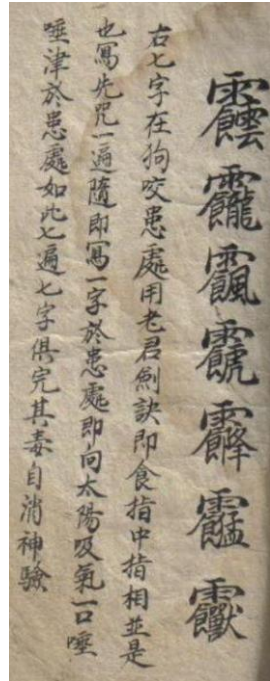 右七字在狗咬患處用老君劍訣即食指中指相並是
也冩先咒一遍隨即冩一字於患處即向太陽吸氣一口唾
唾津於患處如此七遍七字俱完其毒自消神驗